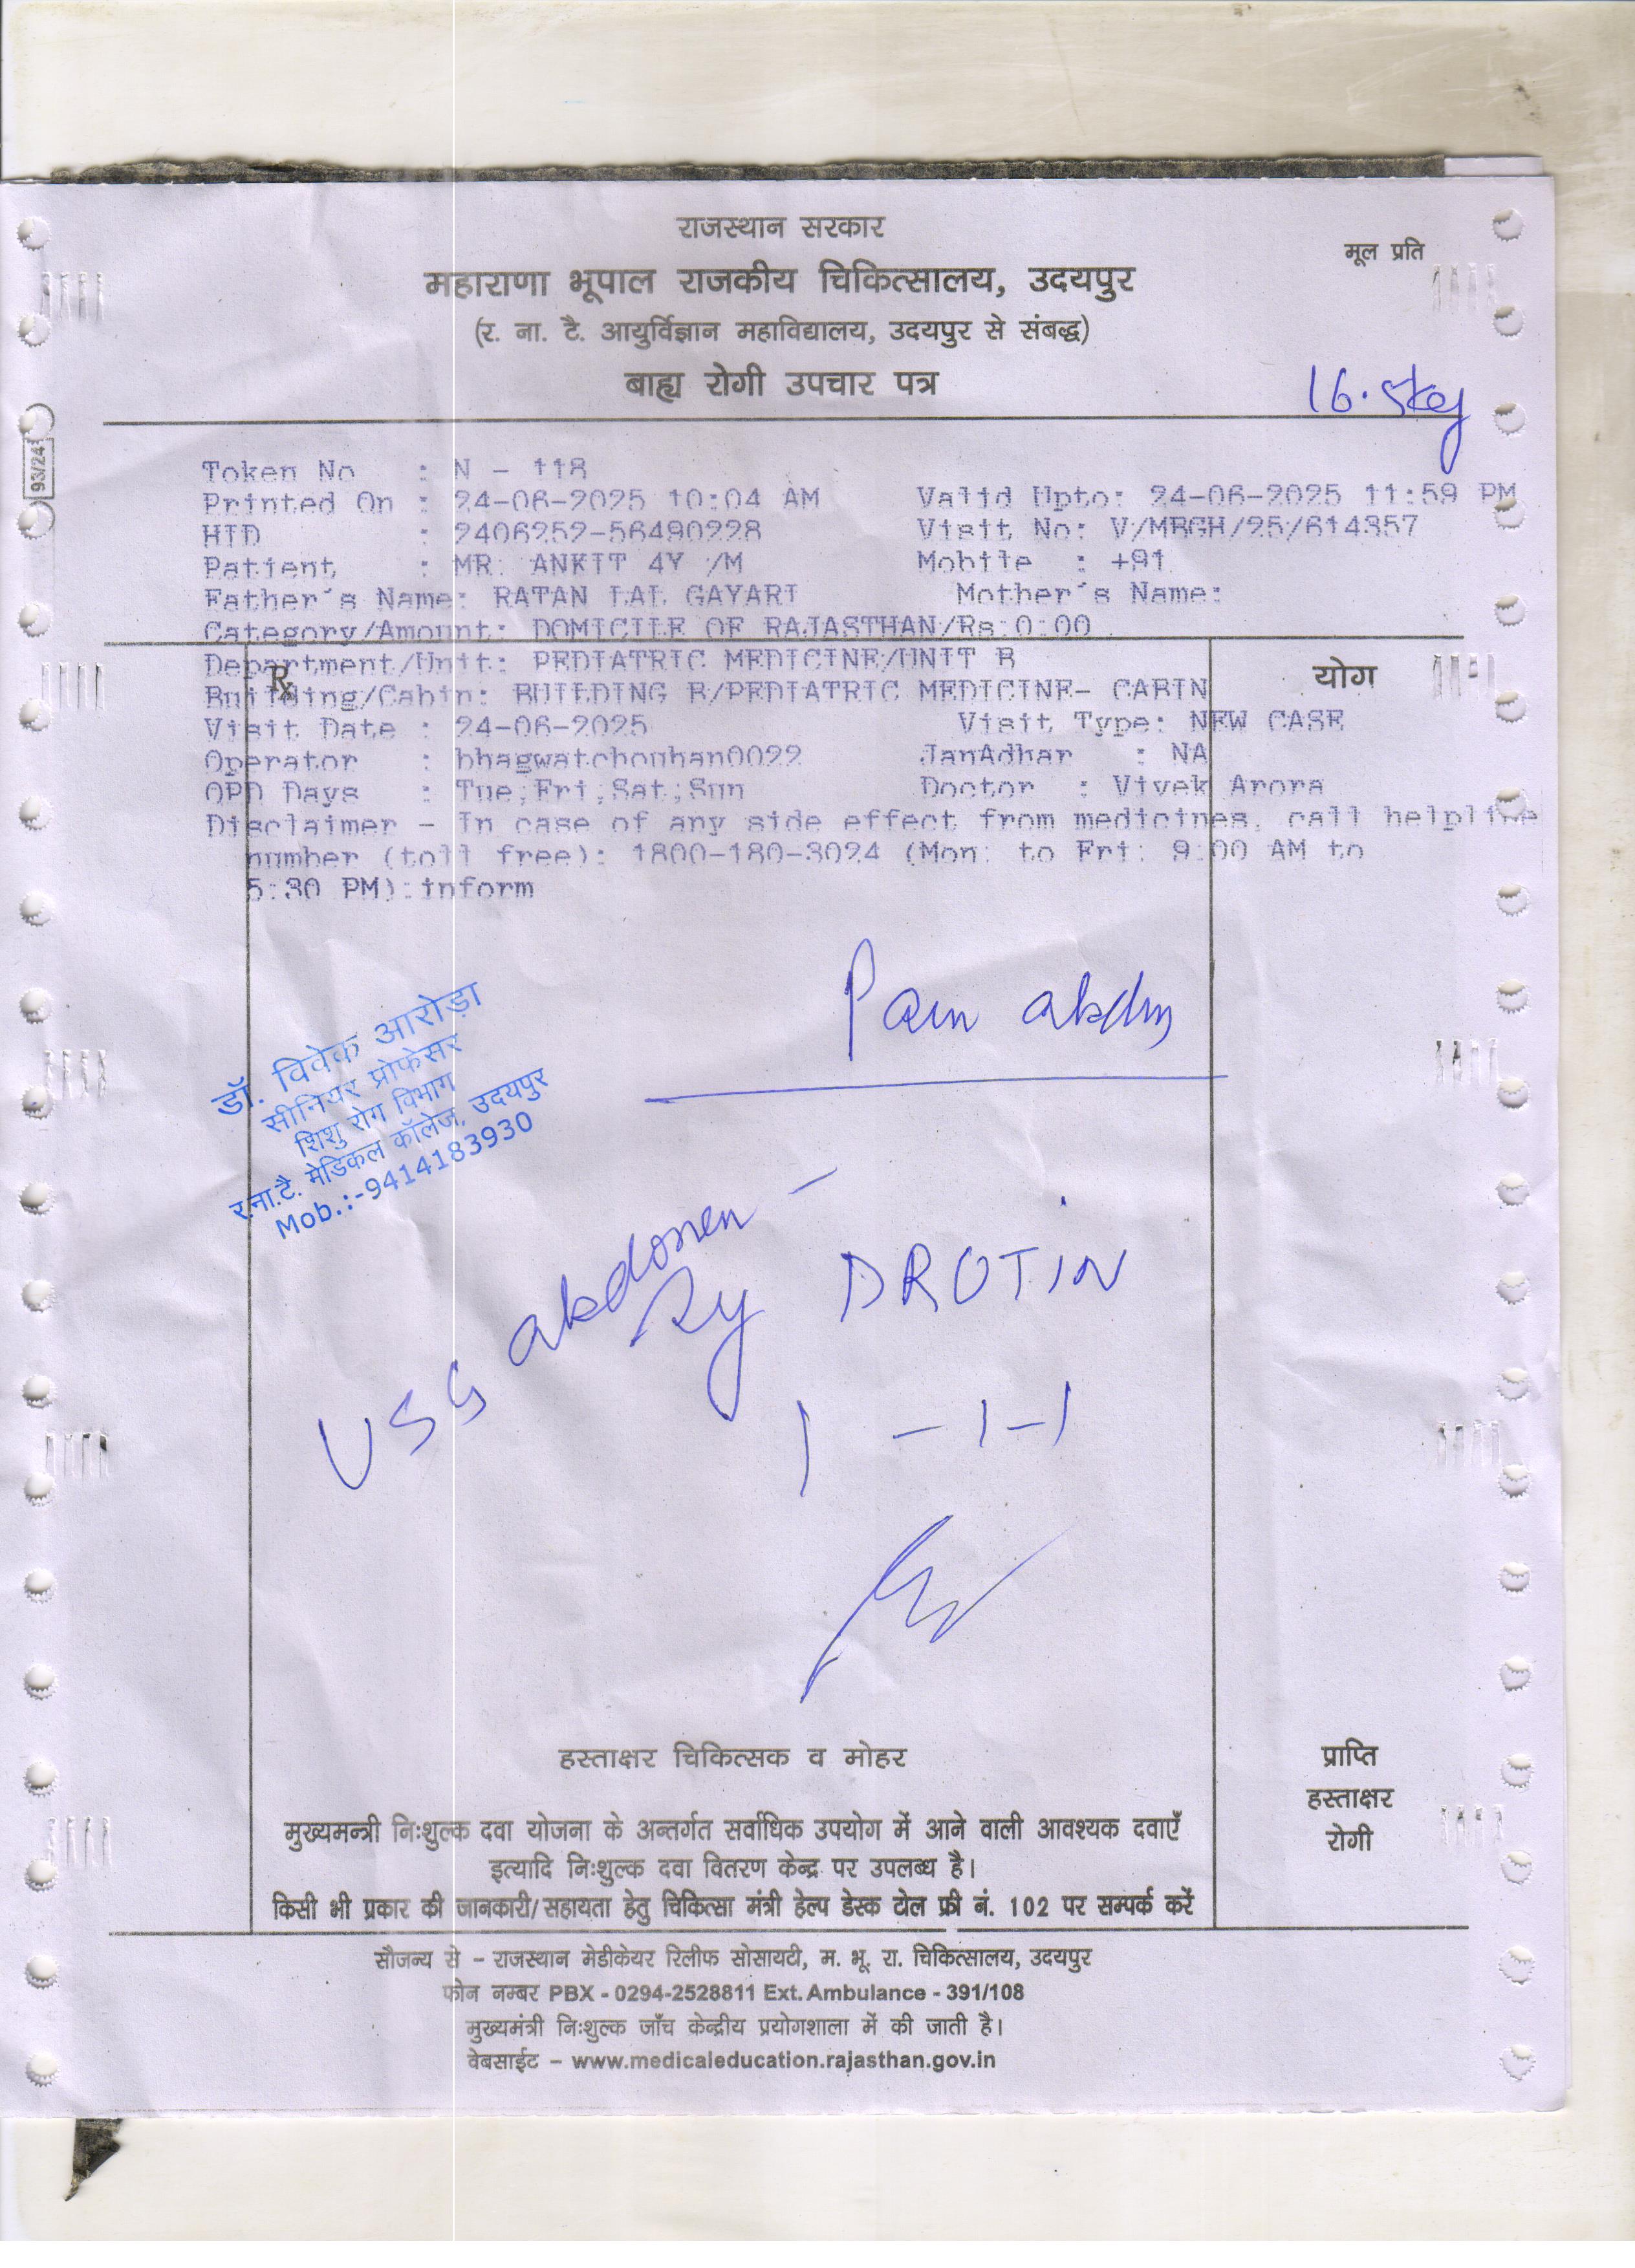 राजस्थान सरकार
मूल प्रति
महाराणा भूपाल राजकीय चिकित्सालय, उदयपुर
(र. ना. टै. आयुर्विज्ञान महाविद्यालय, उदयपुर से संबद्ध)
बाह्य रोगी उपचार पत्र
16.5kg
93/24
Token No : N - 118
Printed On : 24-06-2025 10:04 AM Valid Upto: 24-06-2025 11:59 PM
HID : 2406252-56490228 Visit No: V/MBGH/25/614357
Patient : MR. ANKIT 4Y /M Mobile : +91
Father's Name: RATAN LAL GAYARI Mother's Name:
Category/Amount: DOMICILE OF RAJASTHAN/Rs.0.00
Department/Unit: PEDIATRIC MEDICINE/UNIT B
Rx
योग
Building/Cabin: BUILDING B/PEDIATRIC MEDICINE- CABIN
Visit Date : 24-06-2025 Visit Type: NEW CASE
Operator : bhagwatchouhan0022 JanAdhar : NA
OPD Days : Tue,Fri,Sat,Sun Doctor : Vivek Arora
Disclaimer - In case of any side effect from medicines, call helpline
number (toll free): 1800-180-3024 (Mon. to Fri. 9:00 AM to
5:30 PM).inform
Pain abdm
डॉ. विवेक आरोड़ा
सीनियर प्रोफेसर
शिशु रोग विभाग
र.ना.टै. मेडिकल कॉलेज, उदयपुर
Mob.:-9414183930
USG abdomen -
Sy DROTIN
1 - 1 - 1
हस्ताक्षर चिकित्सक व मोहर
प्राप्ति
हस्ताक्षर
रोगी
मुख्यमन्त्री निःशुल्क दवा योजना के अन्तर्गत सर्वाधिक उपयोग में आने वाली आवश्यक दवाएँ
इत्यादि निःशुल्क दवा वितरण केन्द्र पर उपलब्ध है।
किसी भी प्रकार की जानकारी/सहायता हेतु चिकित्सा मंत्री हेल्प डेस्क टोल फ्री नं. 102 पर सम्पर्क करें
सौजन्य से - राजस्थान मेडीकेयर रिलीफ सोसायटी, म. भू. रा. चिकित्सालय, उदयपुर
फोन नम्बर PBX - 0294-2528811 Ext. Ambulance - 391/108
मुख्यमंत्री निःशुल्क जाँच केन्द्रीय प्रयोगशाला में की जाती है।
वेबसाईट - www.medicaleducation.rajasthan.gov.in